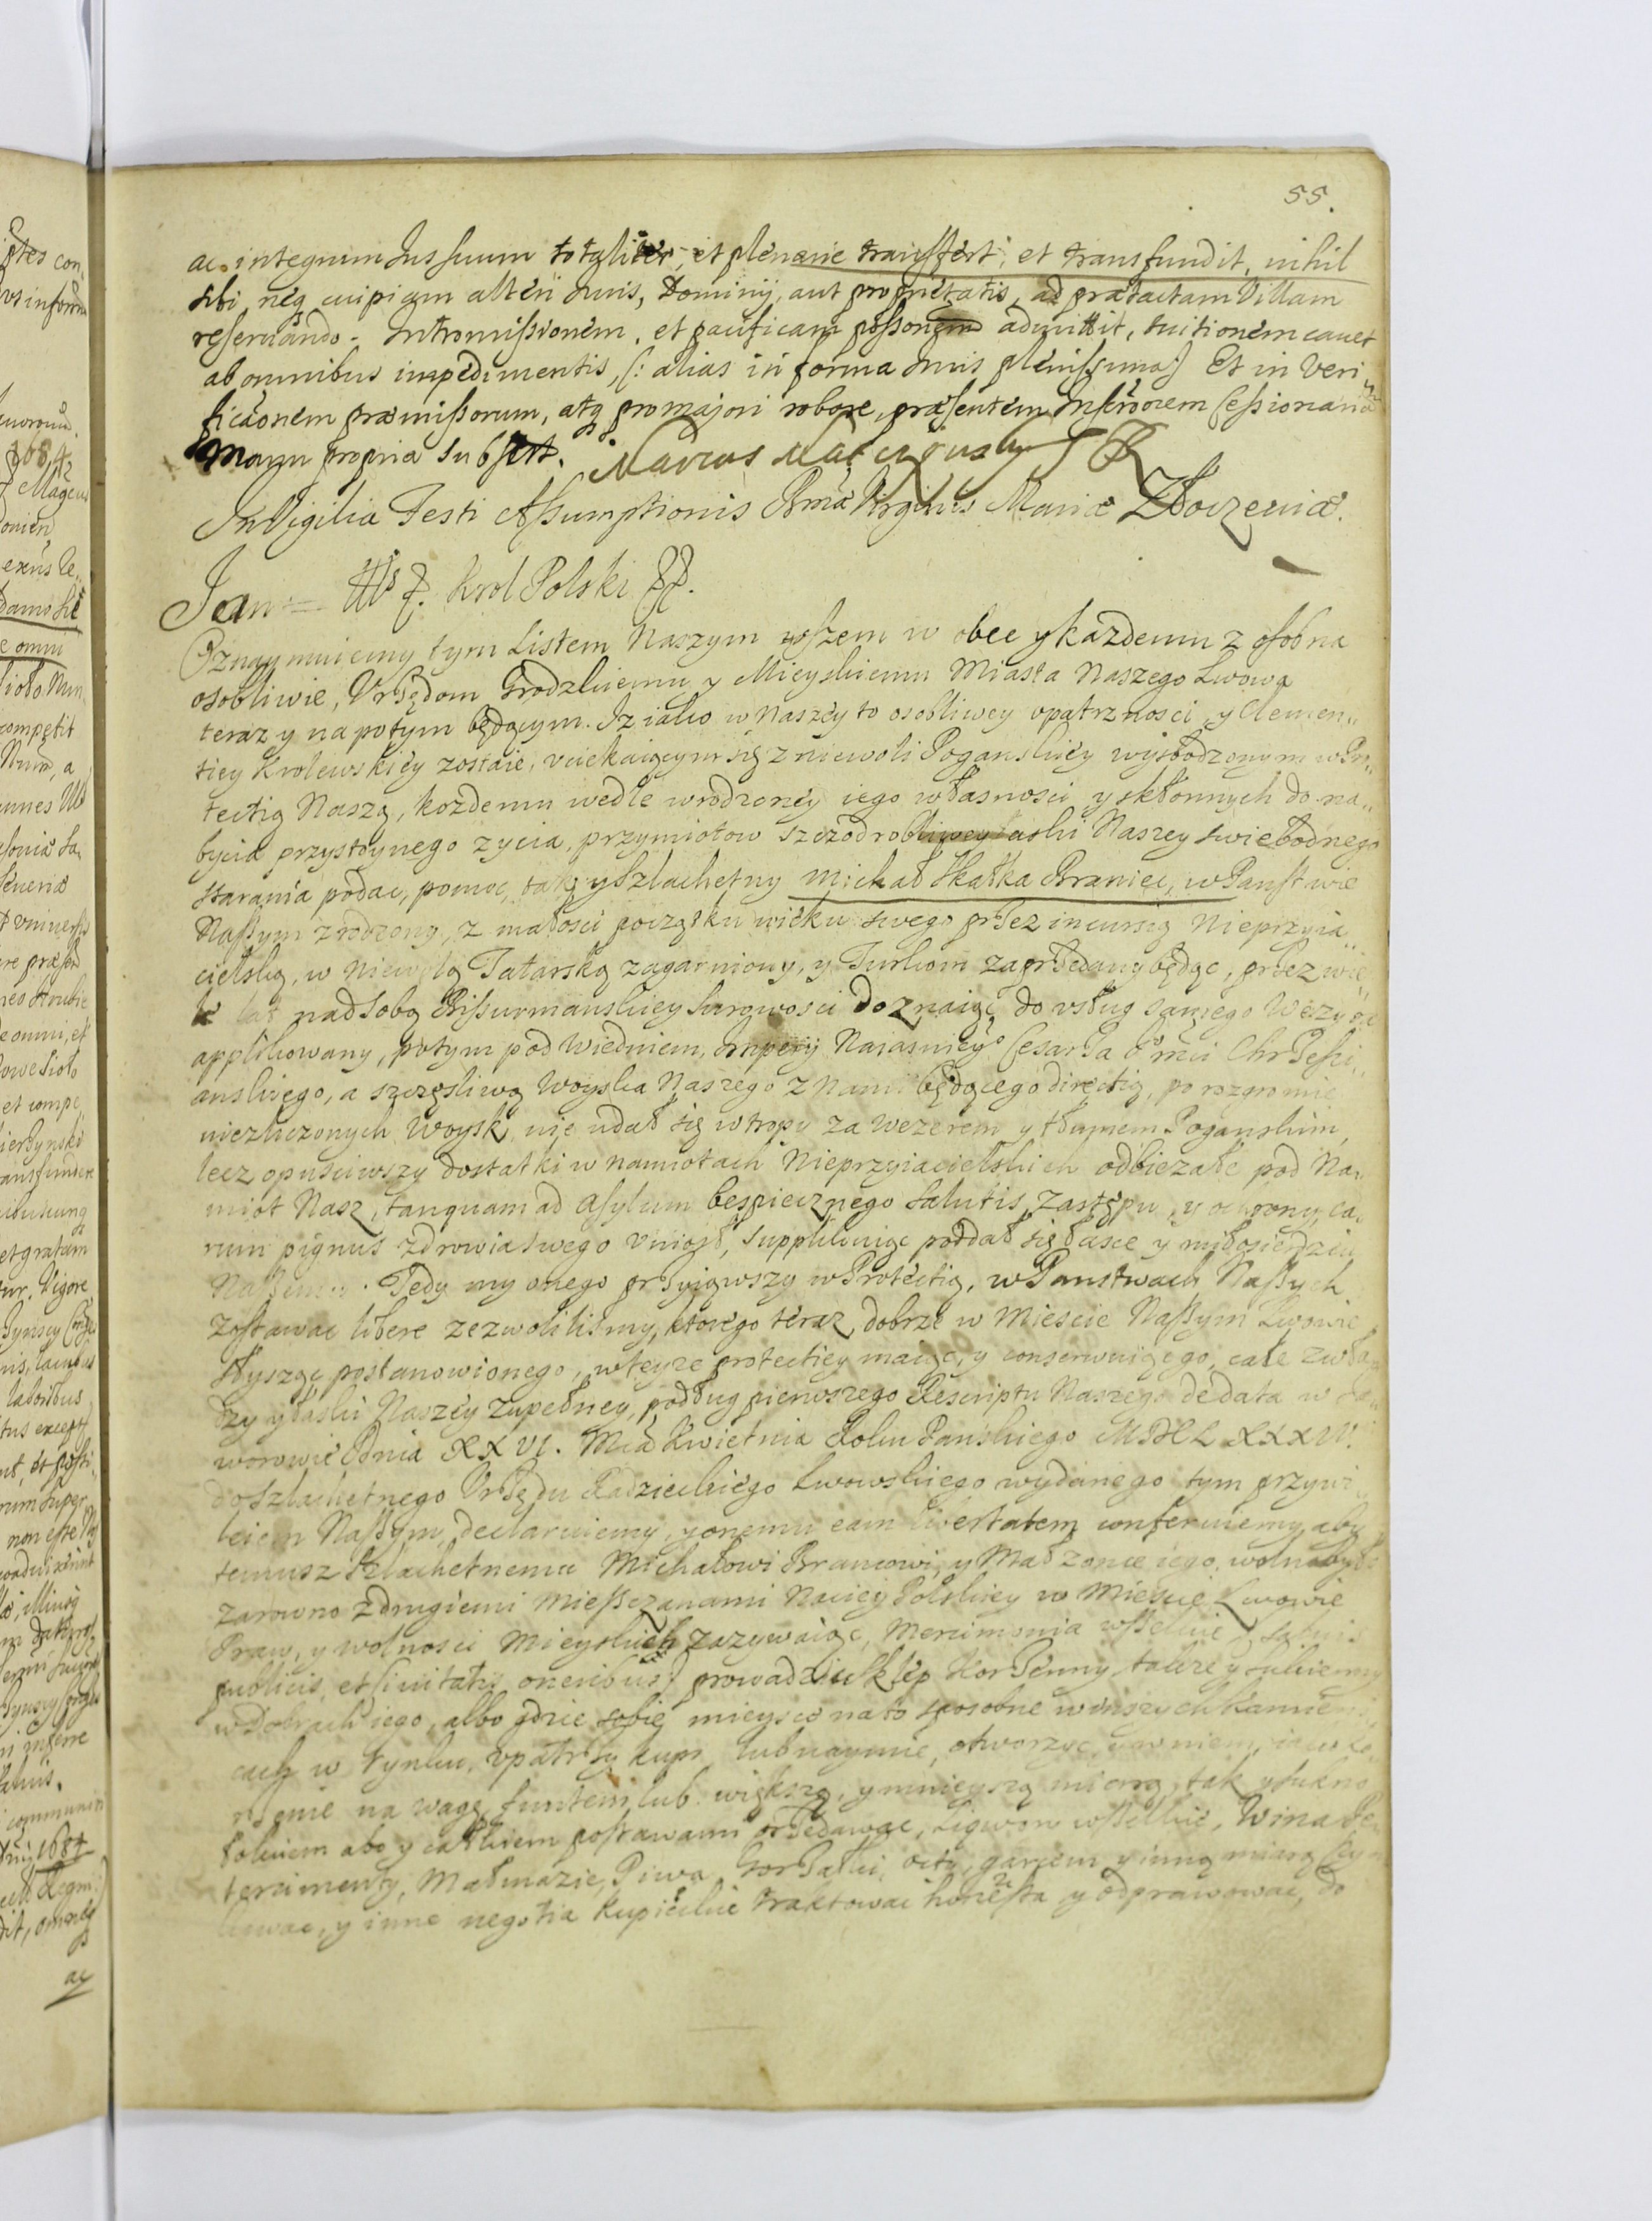 55.
ac integrum Jus suum totaliter, et plenarie transfert, et transfundit, nihil
sibi, neq cuipiam alteri Juris, Dominij, aut proprietatis, ad praetactam Villam
reservando. Intromissionem, et pacificam possonem admittit, tuitionem cavet
ab omnibus impedimentis, (: alias in forma Juris plenissima) Et in Veri„
ficaonem praemissorum, atq pro majori robore, praesentem Inscrōorem Cessionariā
Manu propria subscrt. Marcus Matczynsky
In Vigilia Festi Assumptionis Bmæ Virginis Mariæ Złoczeviæ.
Jan IIIs z. Krol Polski
Oznaymuiemy tym Listem Naszym wszem w obec y kazdemu z osobna
osobliwie, Vrzędom Grodzkiemu y Mieyskiemu Miasta Naszego Lwowa
teraz y napotym będącym. Iz iako w Naszey to osobliwey opatrznosci, y Clemen„
tiey Krolewskiey zostaie, vciekaiącym się z niewoli Poganskiey wyswobodzonym w Pro„
tectią Naszą, kozdemu wedle wrodzoney iego własnosci y skłonnych do na„
bycia przystoynego zycia, przymiotow szczodrobliwey łaski Naszey swiebodnego
starania podac, pomoc, tak y Szlachetny Michał Skałka Braniec, w Panstwie
Naszym zrodzony, z małosci początku wieku swego przez incursią Nieprzyia„
cielską, w Niewolą Tatarską zagarniony, y Turkom zaprzedany będąc, przez wie„
le lat nad sobą Bissurmanskiey surowosci doznaiąc do vsług samego Wezyra
applikowany, potym pod Wiedniem, Naiasnieyo Cesarza Chrzesci„
anskiego, a szczęsliwą Woyska Naszego z Nami będącego directią, po rozgromie
niezliczonych Woysk, nie udał się w tropy za Wezerem y tłumem Poganskim,
lecz opusciwszy dostatki w namiotach Nieprzyiacielskich odbiezałe pod Na„
miot Nasz, tanquam ad asylum bespiecznego Salutis, zastępu, y ochrony, ca„
rum pignus zdrowia swego vniosł, supplikuiąc poddał się łasce y miłosierdziu
Naszemu. Tedy my onego przyiąwszy w Protectią, w Panstwach Naszych
zostawac libere zezwolilismy, ktorego teraz, dobrze w Miescie Naszym Lwowie
słysząc postanowionego, w teyze protectiey maiąc, y conserwuiąc go, cale z wła
dzy y łaski Naszey zupełney, podług pierwszego Rescriptu Naszego de data w Ja„
worowie Dnia XXVI. Mca Kwietnia Roku Panskiego
do Szlachetnego Vrzędu Radzieckiego Lwowskiego wydanego tym przywi
leiem Naszym, declaruiemy, y onemu eam libertatem conferuiemy, aby
temusz Szlachetnemu Michałowi Brancowi, y Małzonce iego, wolno było
zarowno z drugiemi Mieszczanami Naciey Polskiey w Miescie Lwowie
Praw, y wolnosci Mieyskich zazywaiąc, Mercimonia wszelkie salvis
publicis, et Civitatis oneribus prowadzic Sklep Korzenny, takze y sukienny
w dobrach iego, albo gdzie sobie mieysce na to sposobne w inszych Kamieni„
cach w Rynku, vpatrzy kupi lub naymie, otworzyc, y w niem, iako Ko„
rzenie na wagę funtem, lub większą, y mnieyszą miarą, tak y sukno
łokciem abo y całkiem postawami przedawac, Liqwory wszelkie, Wina Pe„
tercimenty, Małmazie, Piwa, Gorzałki, octy, garcem y inną miarą szyn
kowac, y inne negotia Kupieckie traktowac honesta y odprawowac, do